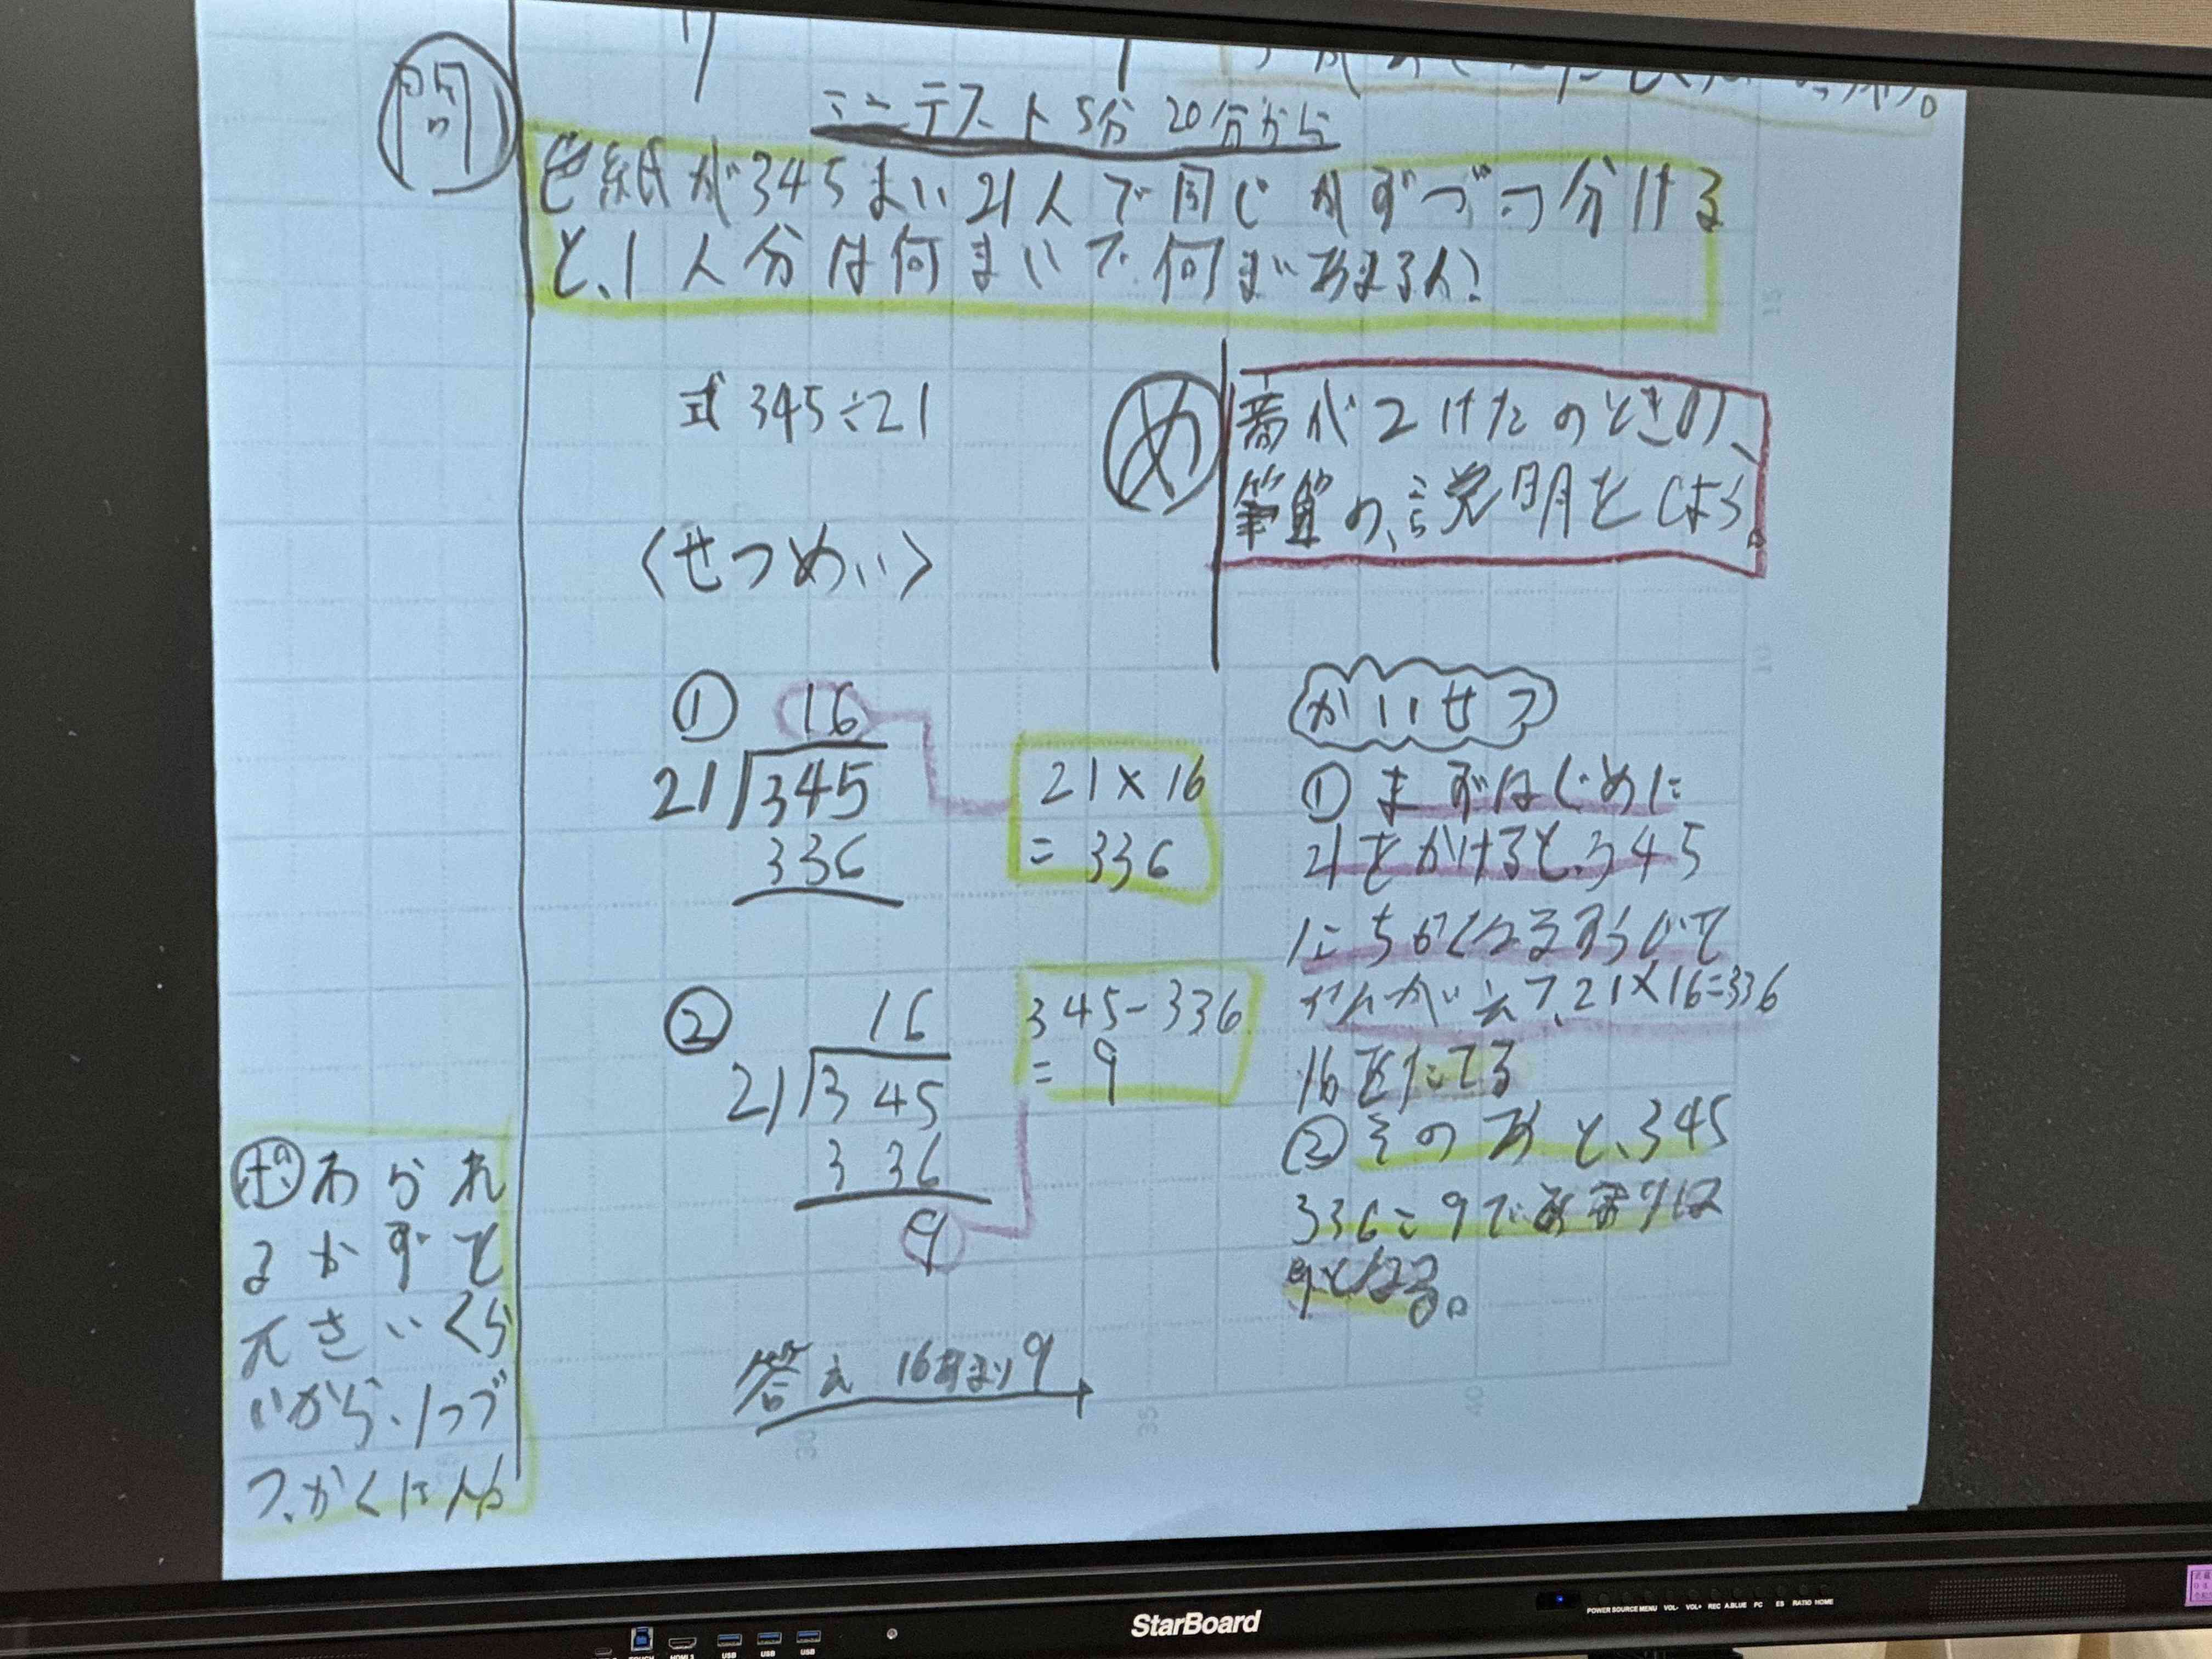 ミニテスト 5分 20分から
問
色紙が345まい21人で同じかずづつ分ける
と、1人分は何まいで何まいあまるか?
式 345÷21
め
商が2けたのときの、
筆算の、説明をしよう。
〈せつめい〉
① 16
21 345
336
21×16
= 336
② 16
21 345
3 36
9
345-336
= 9
答え 16あまり9
かいせつ
① まずはじめに
21をかけると、345
にちかくなるすうじで
かんがえて、21×16=336
16をたてる
② そのあと、345
336=9であまりは
9となる。
ポ わられ
るかずで
大きいくら
いから、1つづ
つ、かくにん
StarBoard
POWER SOURCE MENU VOL- VOL+ REC A.BLUE PC ES RATIO HOME
TOUCH HDMI 3 USB USB USB
30 35 40